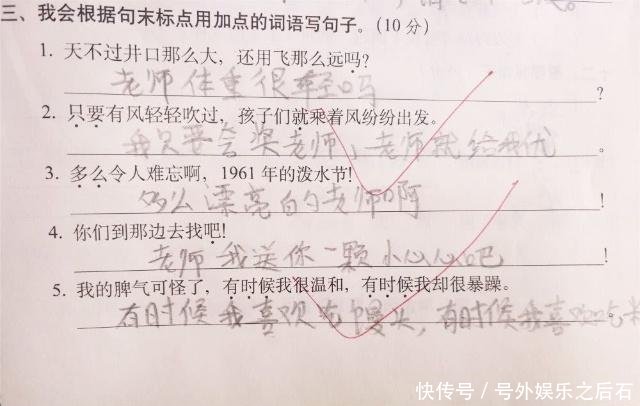 三、我会根据句末标点用加点的词语写句子。(10分)
1. 天不过井口那么大，还用飞那么远吗?
老师体重很轻吗?
2. 只要有风轻轻吹过，孩子们就乘着风纷纷出发。
我只要会夸老师，老师就给我优。
3. 多么令人难忘啊，1961年的泼水节!
多么漂亮的老师啊!
4. 你们到那边去找吧!
老师我送你一颗小心心吧!
5. 我的脾气可怪了，有时候我很温和，有时候我却很暴躁。
有时候我喜欢吃馒头，有时候我喜欢吃
快传号 / 号外娱乐之后石